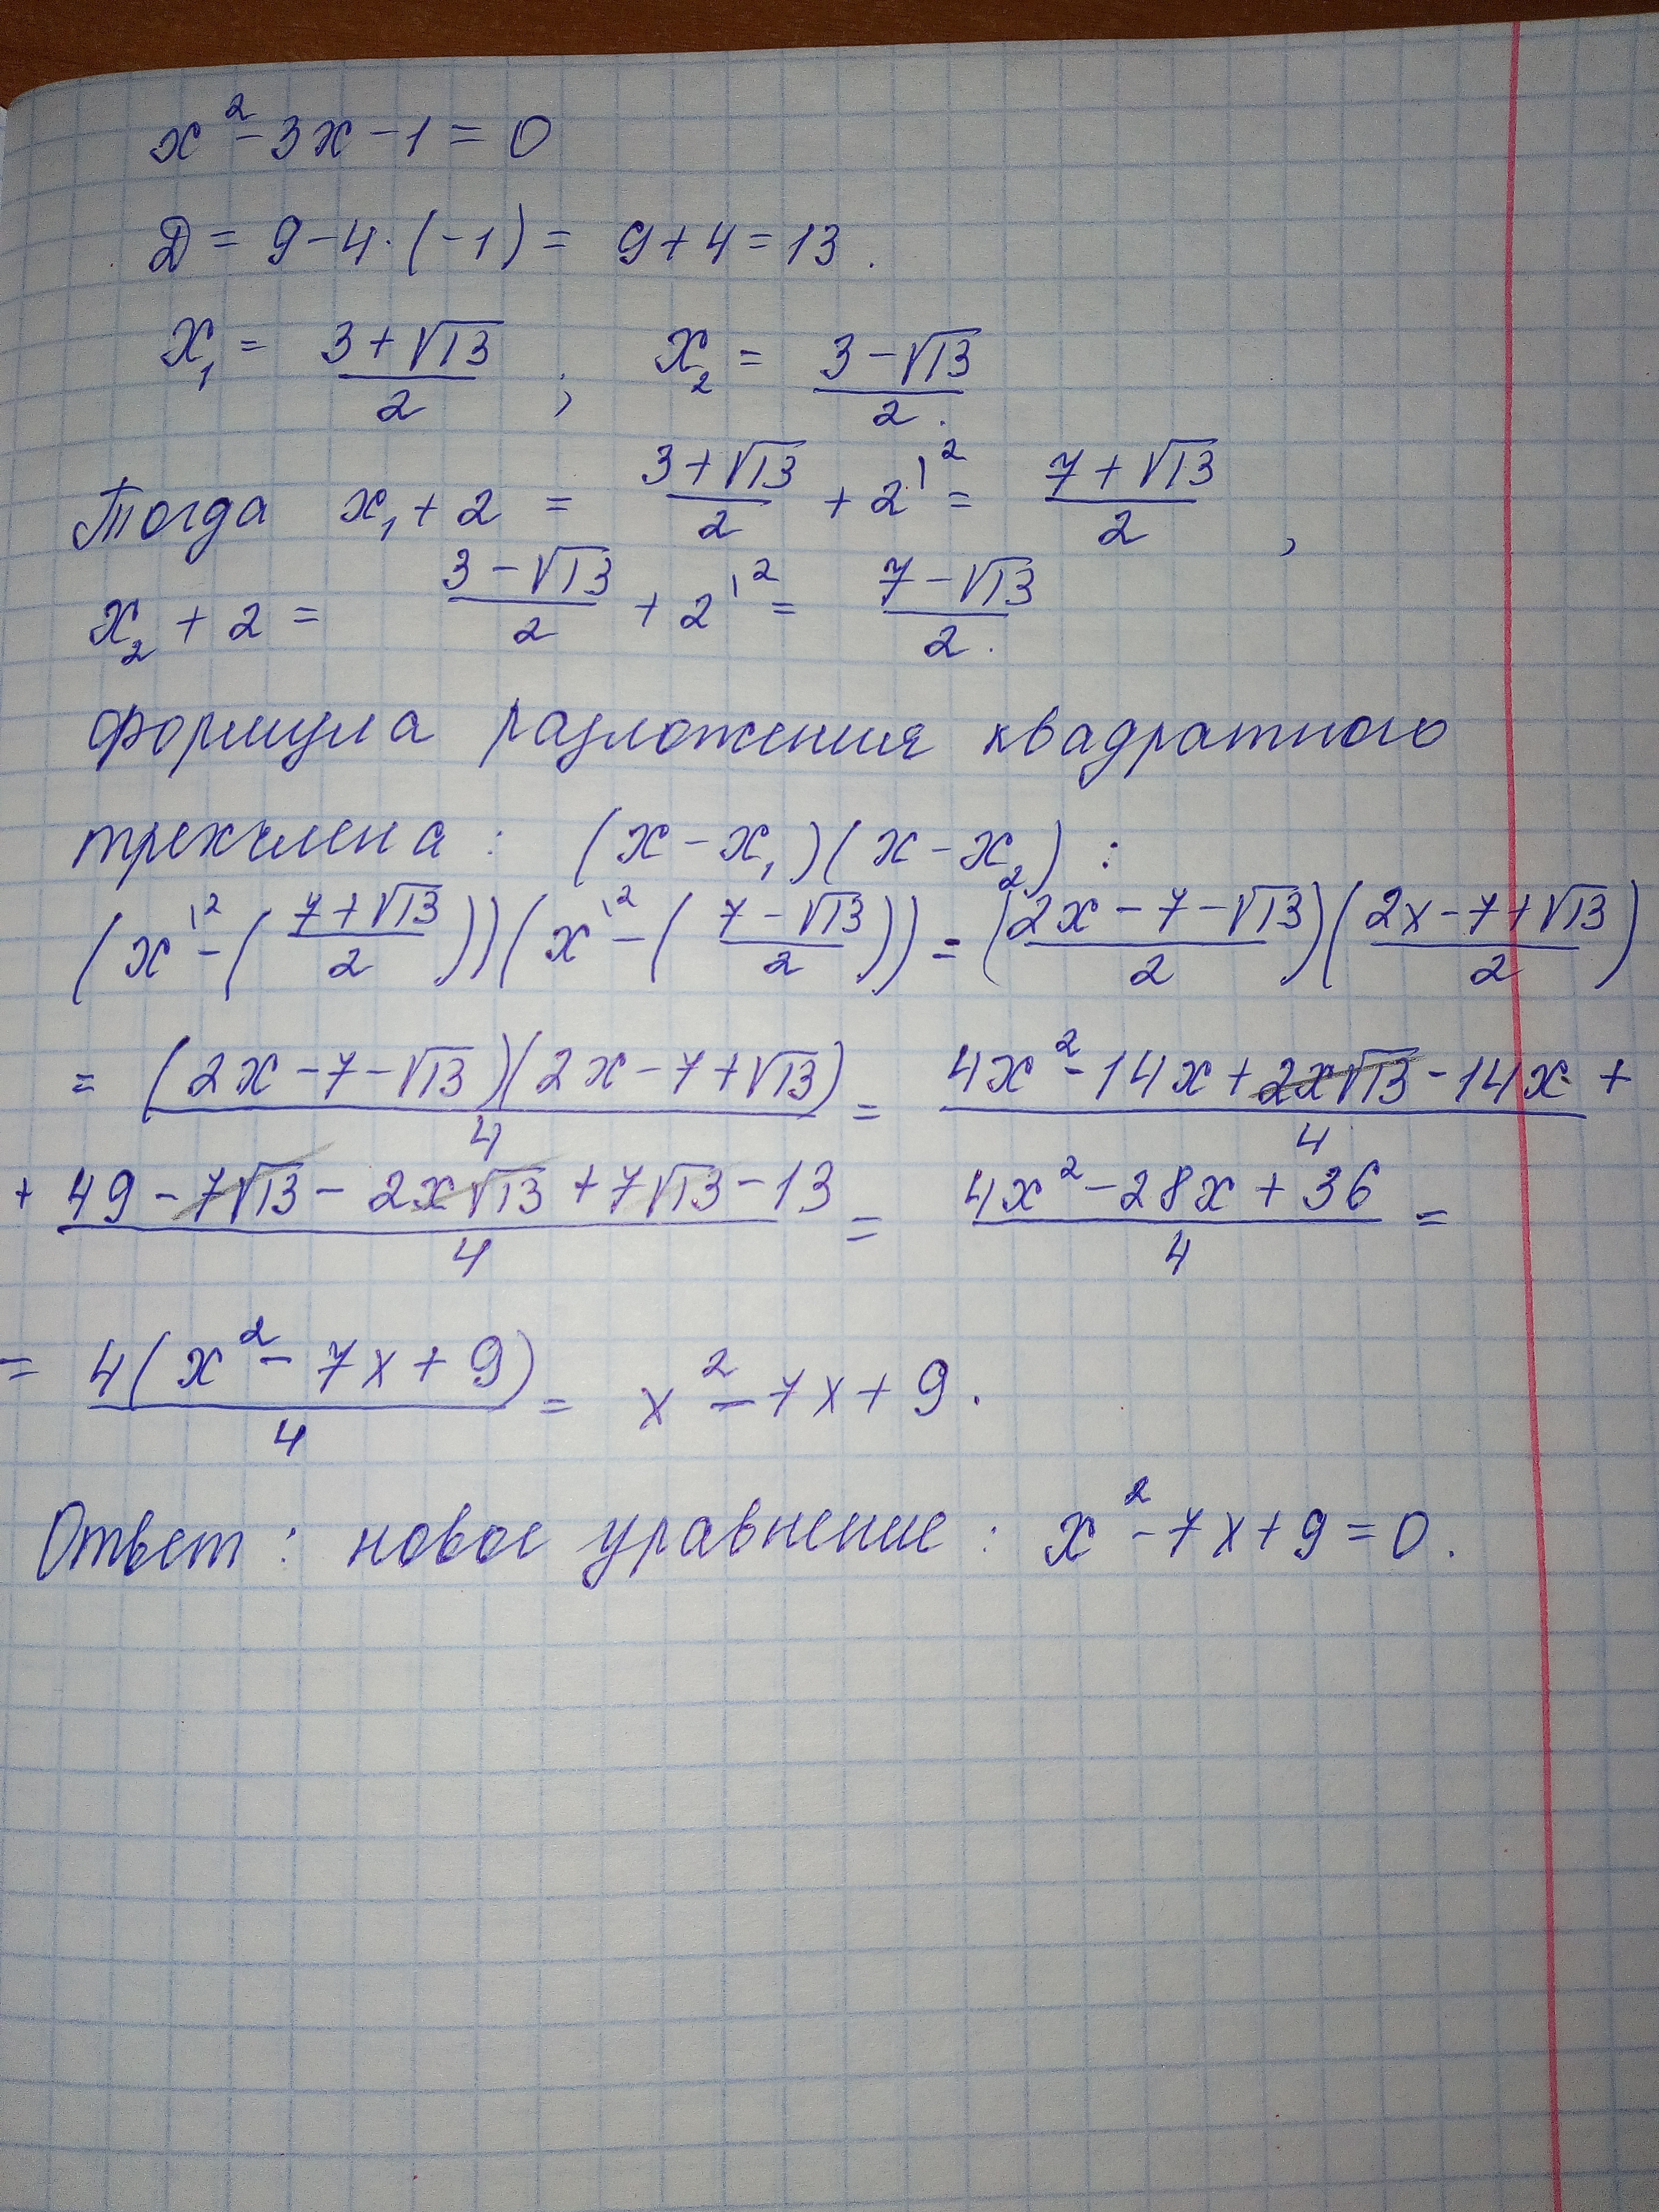 x² - 3x - 1 = 0
D = 9 - 4·(-1) = 9 + 4 = 13.
x₁ = (3 + √13)/2 ; x₂ = (3 - √13)/2.
Тогда x₁ + 2 = (3 + √13)/2 + 2^{\2} = (7 + √13)/2 ,
x₂ + 2 = (3 - √13)/2 + 2^{\2} = (7 - √13)/2.
формула разложения квадратного
трехчлена : (x - x₁)(x - x₂) :
(x^{\2} - ((7 + √13)/2))(x^{\2} - ((7 - √13)/2)) = ((2x - 7 - √13)/2)((2x - 7 + √13)/2)
= ((2x - 7 - √13)(2x - 7 + √13))/4 = (4x² - 14x + 2x√13 - 14x +)/4
+ (49 - 7√13 - 2x√13 + 7√13 - 13)/4 = (4x² - 28x + 36)/4 =
= (4(x² - 7x + 9))/4 = x² - 7x + 9.
Ответ : новое уравнение : x² - 7x + 9 = 0.